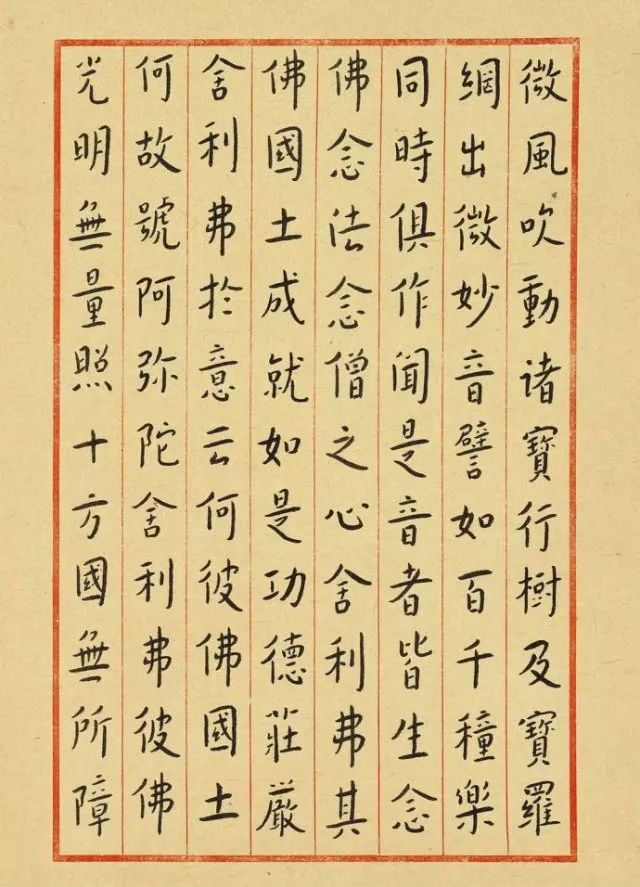 微風吹動諸寶行樹及寶羅
網出微妙音譬如百千種樂
同時俱作聞是音者皆生念
佛念法念僧之心舍利弗其
佛國土成就如是功德莊嚴
舍利弗於意云何彼佛國土
何故號阿弥陀舍利弗彼佛
光明無量照十方國無所障